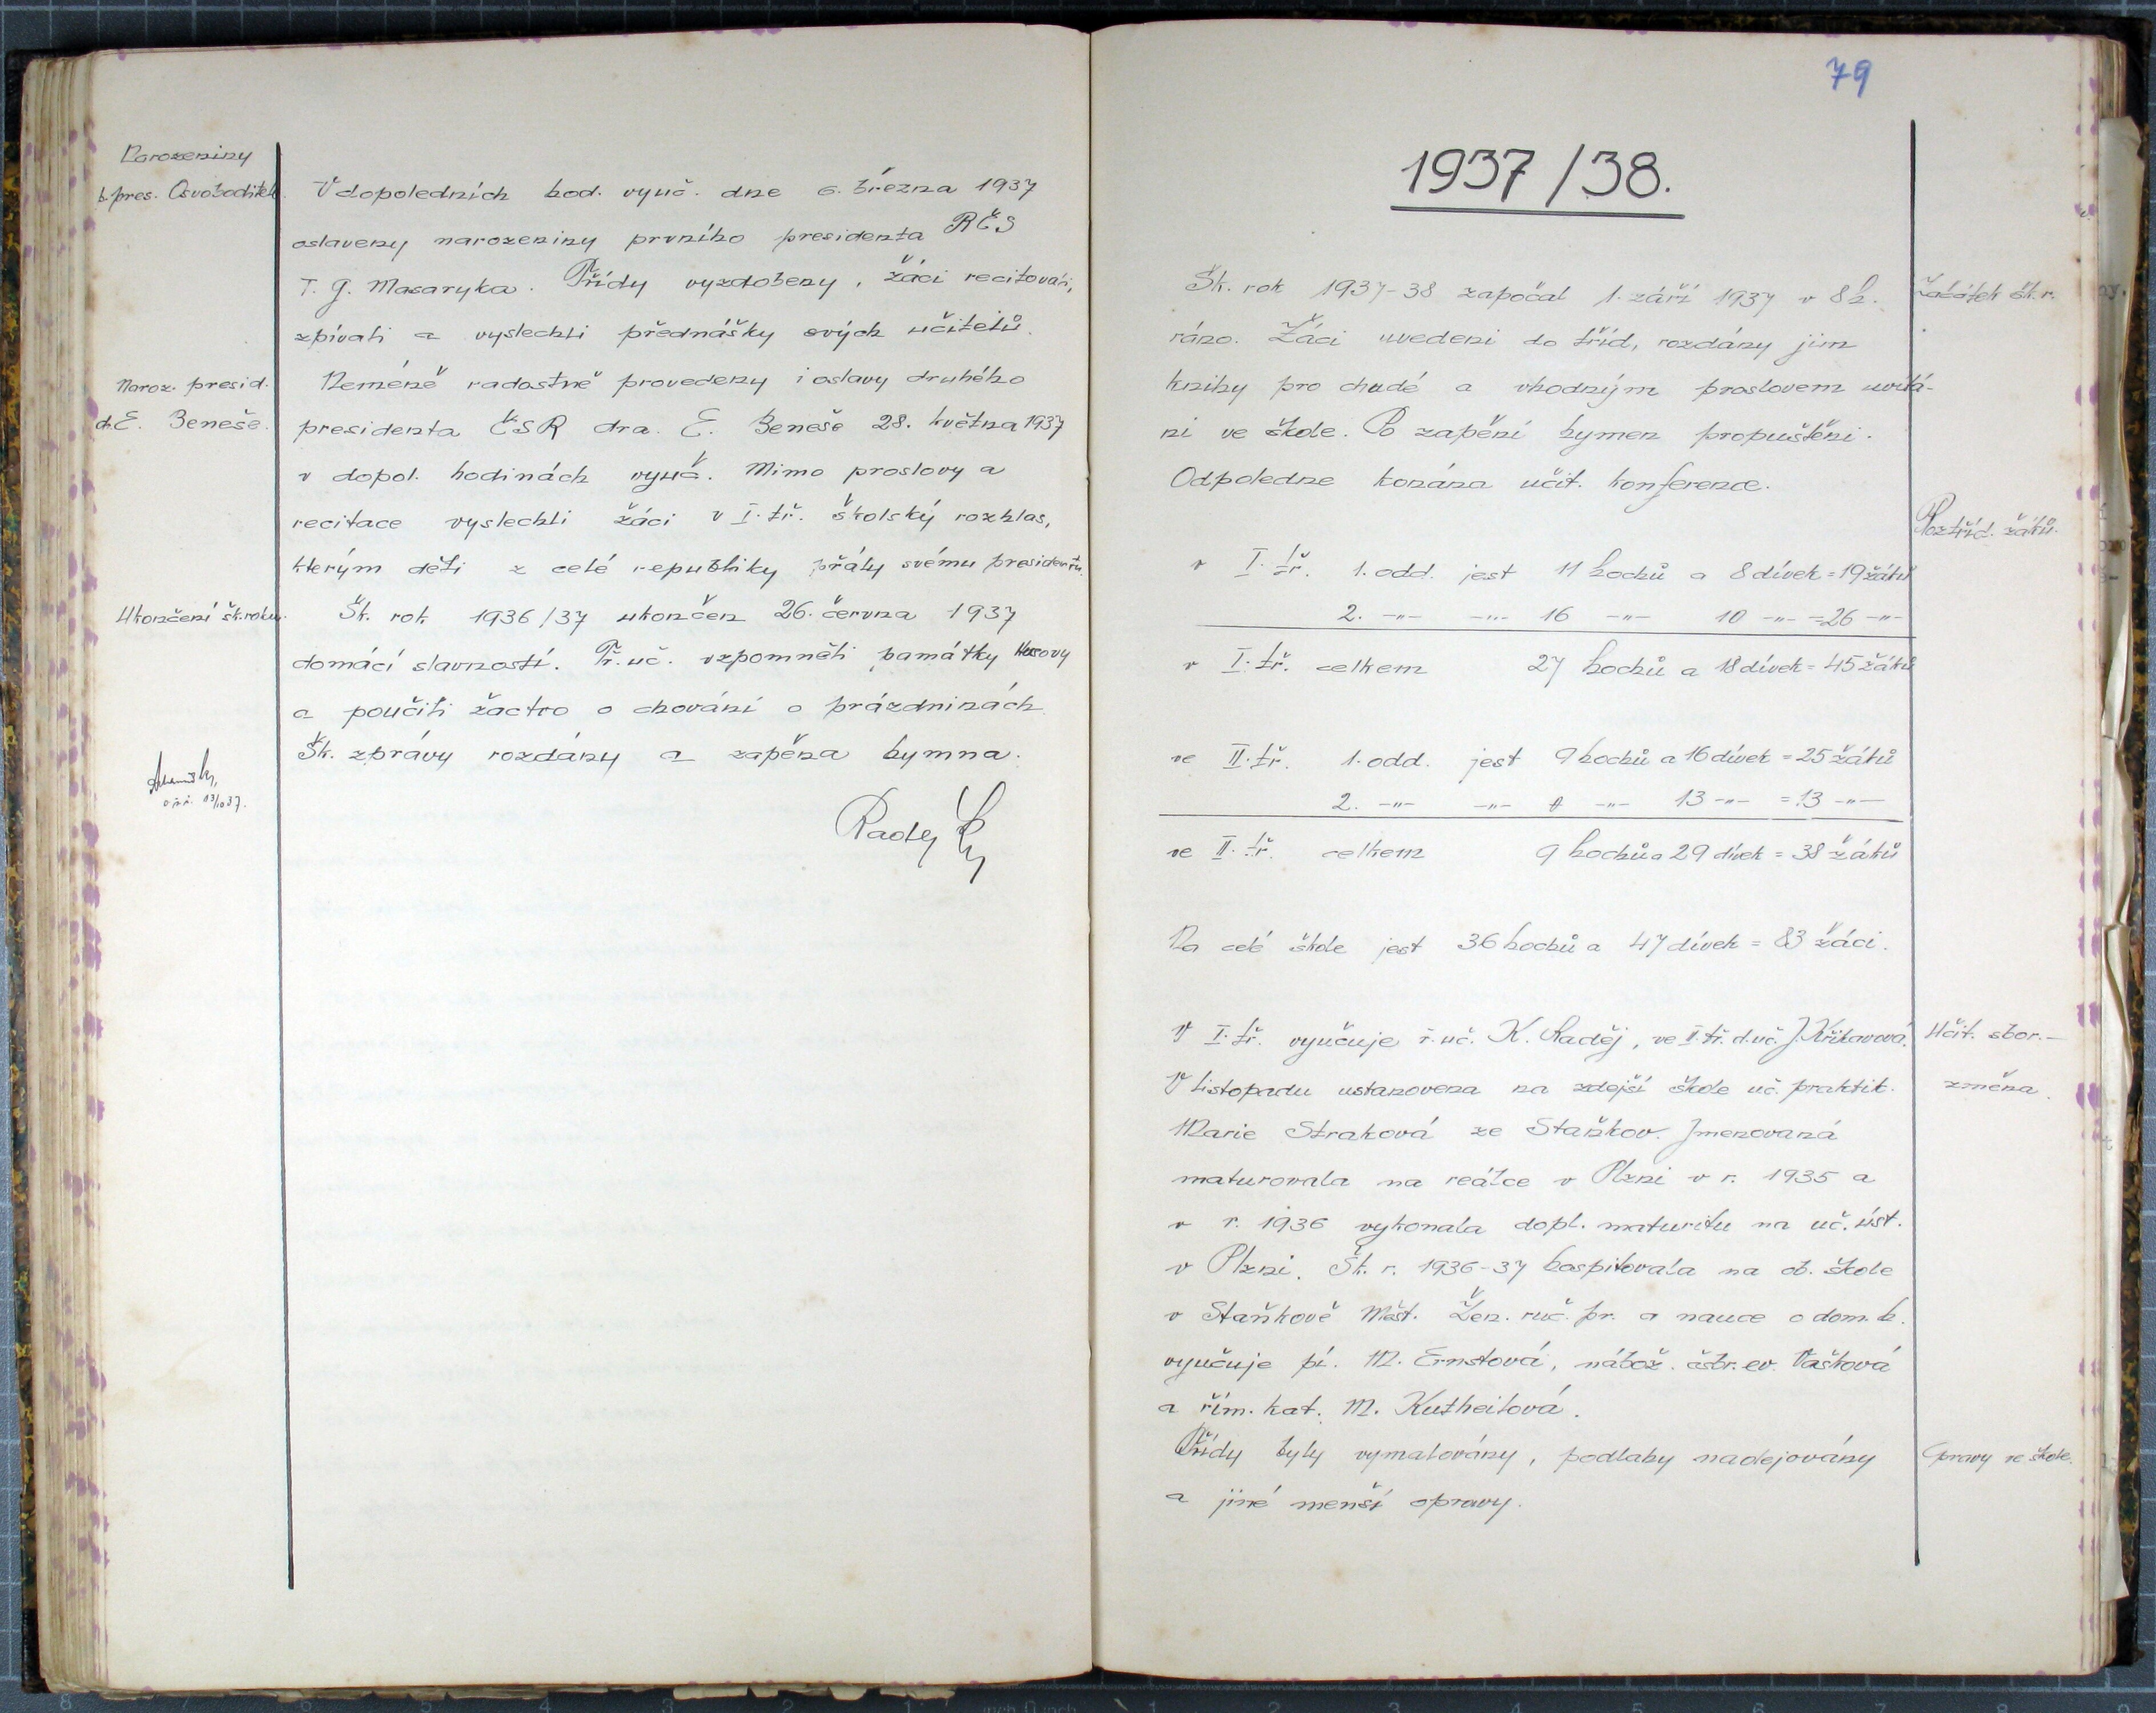 Narozeniny
b. pres. Osvoboditele.
V dopoledních hod. vyuč. dne 6. března 1937
oslaveny narozeniny prvního presidenta RČS
T. G. Masaryka. Třídy vyzdobeny, žáci recitovali,
zpívali a vyslechli přednášky svých učitelů.
Naroz. presid.
dr. E. Beneše.
Neméně radostně provedeny i oslavy druhého
presidenta ČSR dra. E. Beneše 28. května 1937
v dopol. hodinách vyuč. Mimo proslovy a
recitace vyslechli žáci v I. tř. školský rozhlas,
kterým děti z celé republiky přály svému presidentu.
Ukončení šk. roku.
Šk. rok 1936/37 ukončen 26. června 1937
domácí slavností. Tř. uč. vzpomněli památky Husovy
a poučili žactvo o chování o prázdninách.
Šk. zprávy rozdány a zapěna hymna.
13/10 37.
79
1937/38.
Šk. rok 1937-38 započal 1. září 1937 v 8 h.
Začátek šk. r.
ráno. Žáci uvedeni do tříd, rozdány jim
knihy pro chudé a vhodným proslovem uvítá-
ni ve škole. Po zapění hymen propuštěni.
Odpoledne konána učit. konference.
Roztříd. žáků.
v I. tř. 1. odd. jest 11 hochů a 8 dívek = 19 žáků
2. -"- -"- 16 -"- 10 -"- = 26 -"-
v I. tř. celkem 27 hochů a 18 dívek = 45 žáků
ve II. tř. 1. odd. jest 9 hochů a 16 dívek = 25 žáků
2. -"- -"- 0 -"- 13 -"- = 13 -"-
ve II. tř. celkem 9 hochů a 29 dívek = 38 žáků
Na celé škole jest 36 hochů a 47 dívek = 83 žáci.
V I. tř. vyučuje ř. uč. K. Raděj, ve II. tř. d. uč. J. Křikavová.
Učit. sbor. -
změna.
V listopadu ustanovena na zdejší škole uč. praktik.
Marie Straková ze Staňkov. Jmenovaná
maturovala na reálce v Plzni v r. 1935 a
v r. 1936 vykonala dopl. maturitu na uč. úst.
v Plzni. Šk. r. 1936-37 hospitovala na ob. škole
v Staňkově Měst. Žen. ruč. pr. a nauce o dom. h.
vyučuje pí. M. Ernstová, nábož. čsbr. ev. Vašková
a řím. kat. M. Kutheilová.
Třídy byly vymalovány, podlahy naolejovány
Opravy ve škole.
a jiné menší opravy.